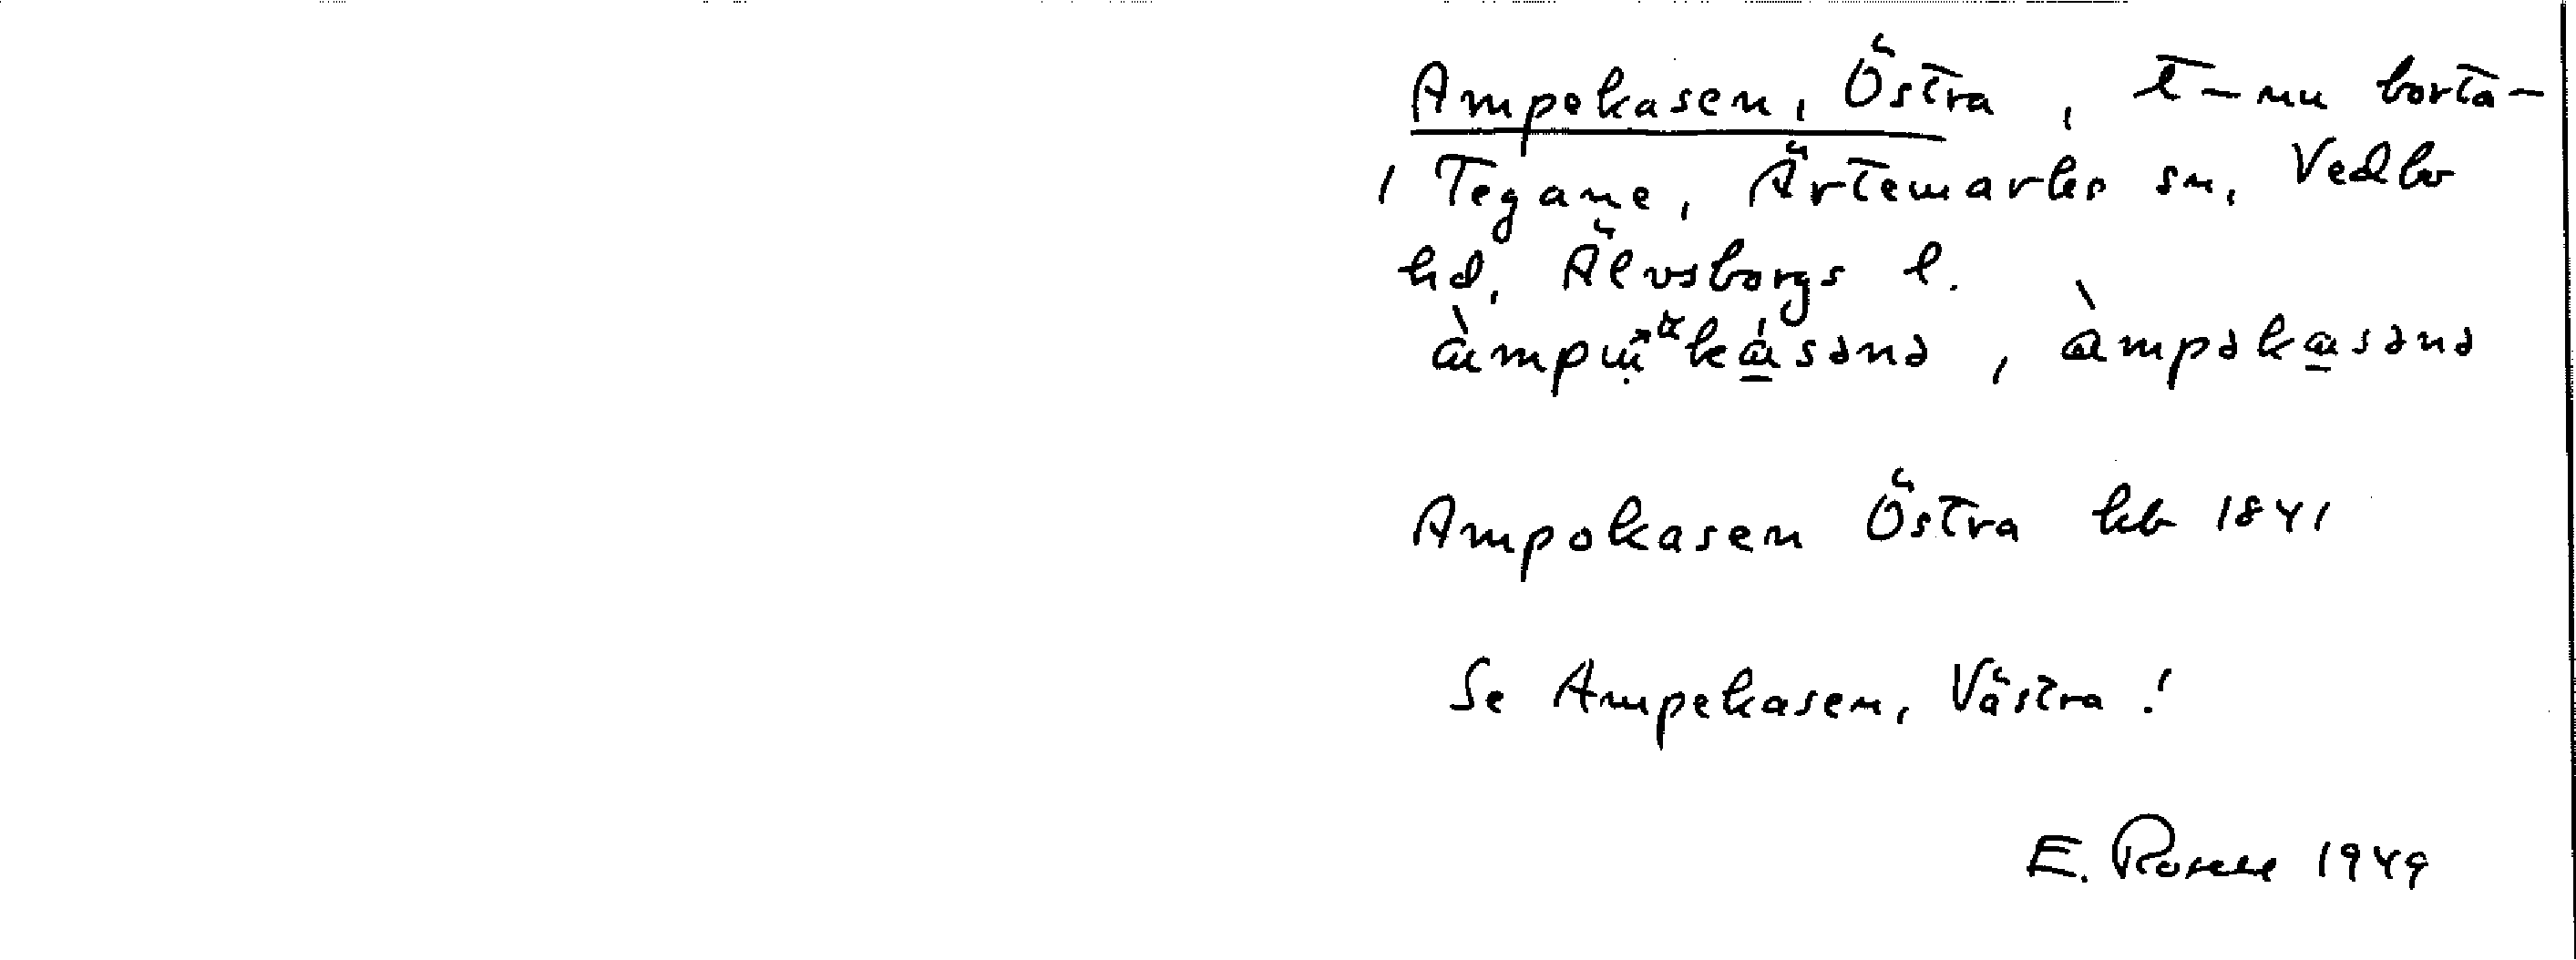 Ampekasen, Östra, t – nu borta –
i Tegane, Ärtemarks sn, Vedbo
hd, Älvsborgs l.
, àmpəkasənə
Ampokasen Östra kb 1841
Se Ampekasen, Västra!
E. Rosell 1949